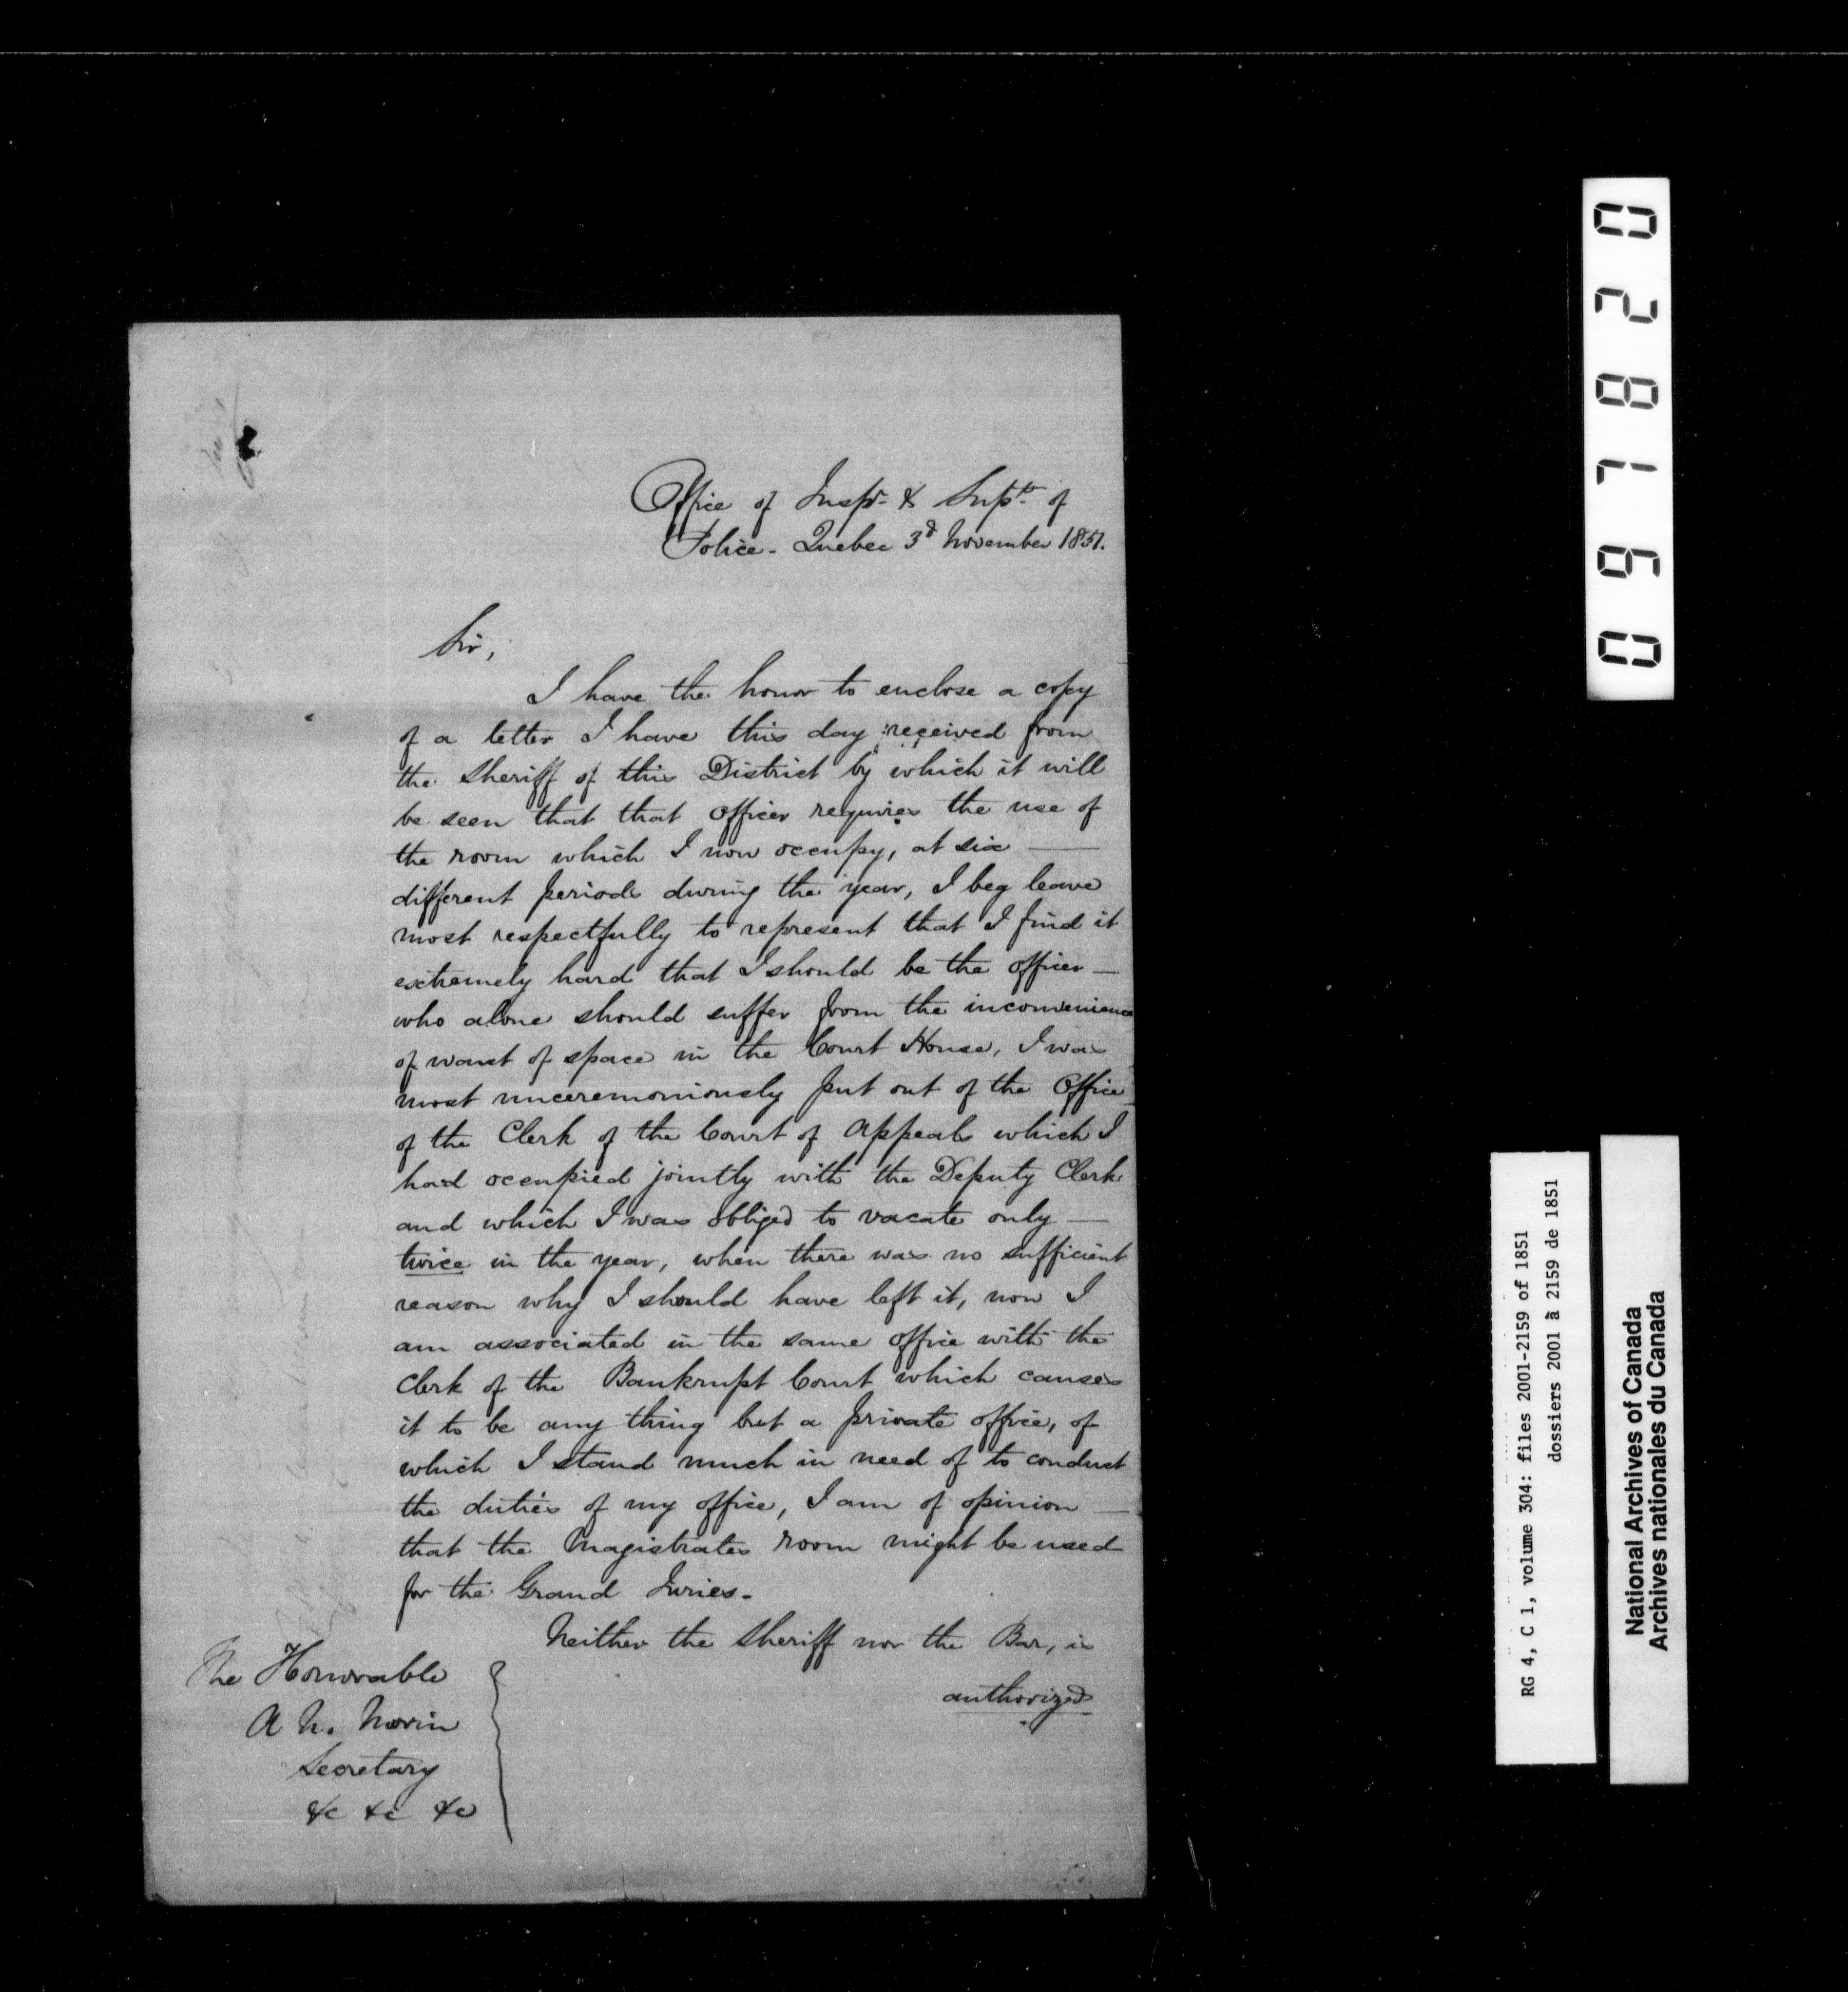 Office of Inspr. & Supt. of
Police - Quebec 3d November 1851.
Sir,
I have the honor to enclose a copy
of a letter I have this day received from
the Sheriff of this District by which it will
be seen that that officer requires the use of
the room which I now occupy, at six —
different periods during the year, I beg leave
most respectfully to represent that I find it
extremely hard that I should be the officer —
who alone should suffer from the inconvenience
of want of space in the Court House, I was
most unceremoniously put out of the Office
of the Clerk of the Court of Appeals which I
had occupied jointly with the Deputy Clerk
and which I was obliged to vacate only —
twice in the year, when there was no sufficient
reason why I should have left it, now I
am associated in the same office with the
Clerk of the Bankrupt Court which causes
it to be any thing but a private office, of
which I stand much in need of to conduct
the duties of my office, I am of opinion —
that the Magistrates room might be used
for the Grand Juries -
Neither the Sheriff nor the Bar, is
authorized
The Honorable
A N. Morin
Secretary
&c &c &c
0 9 1 8 2 0
RG 4, C 1, volume 304: files 2001-2159 of 1851
dossiers 2001 à 2159 de 1851
National Archives of Canada
Archives nationales du Canada